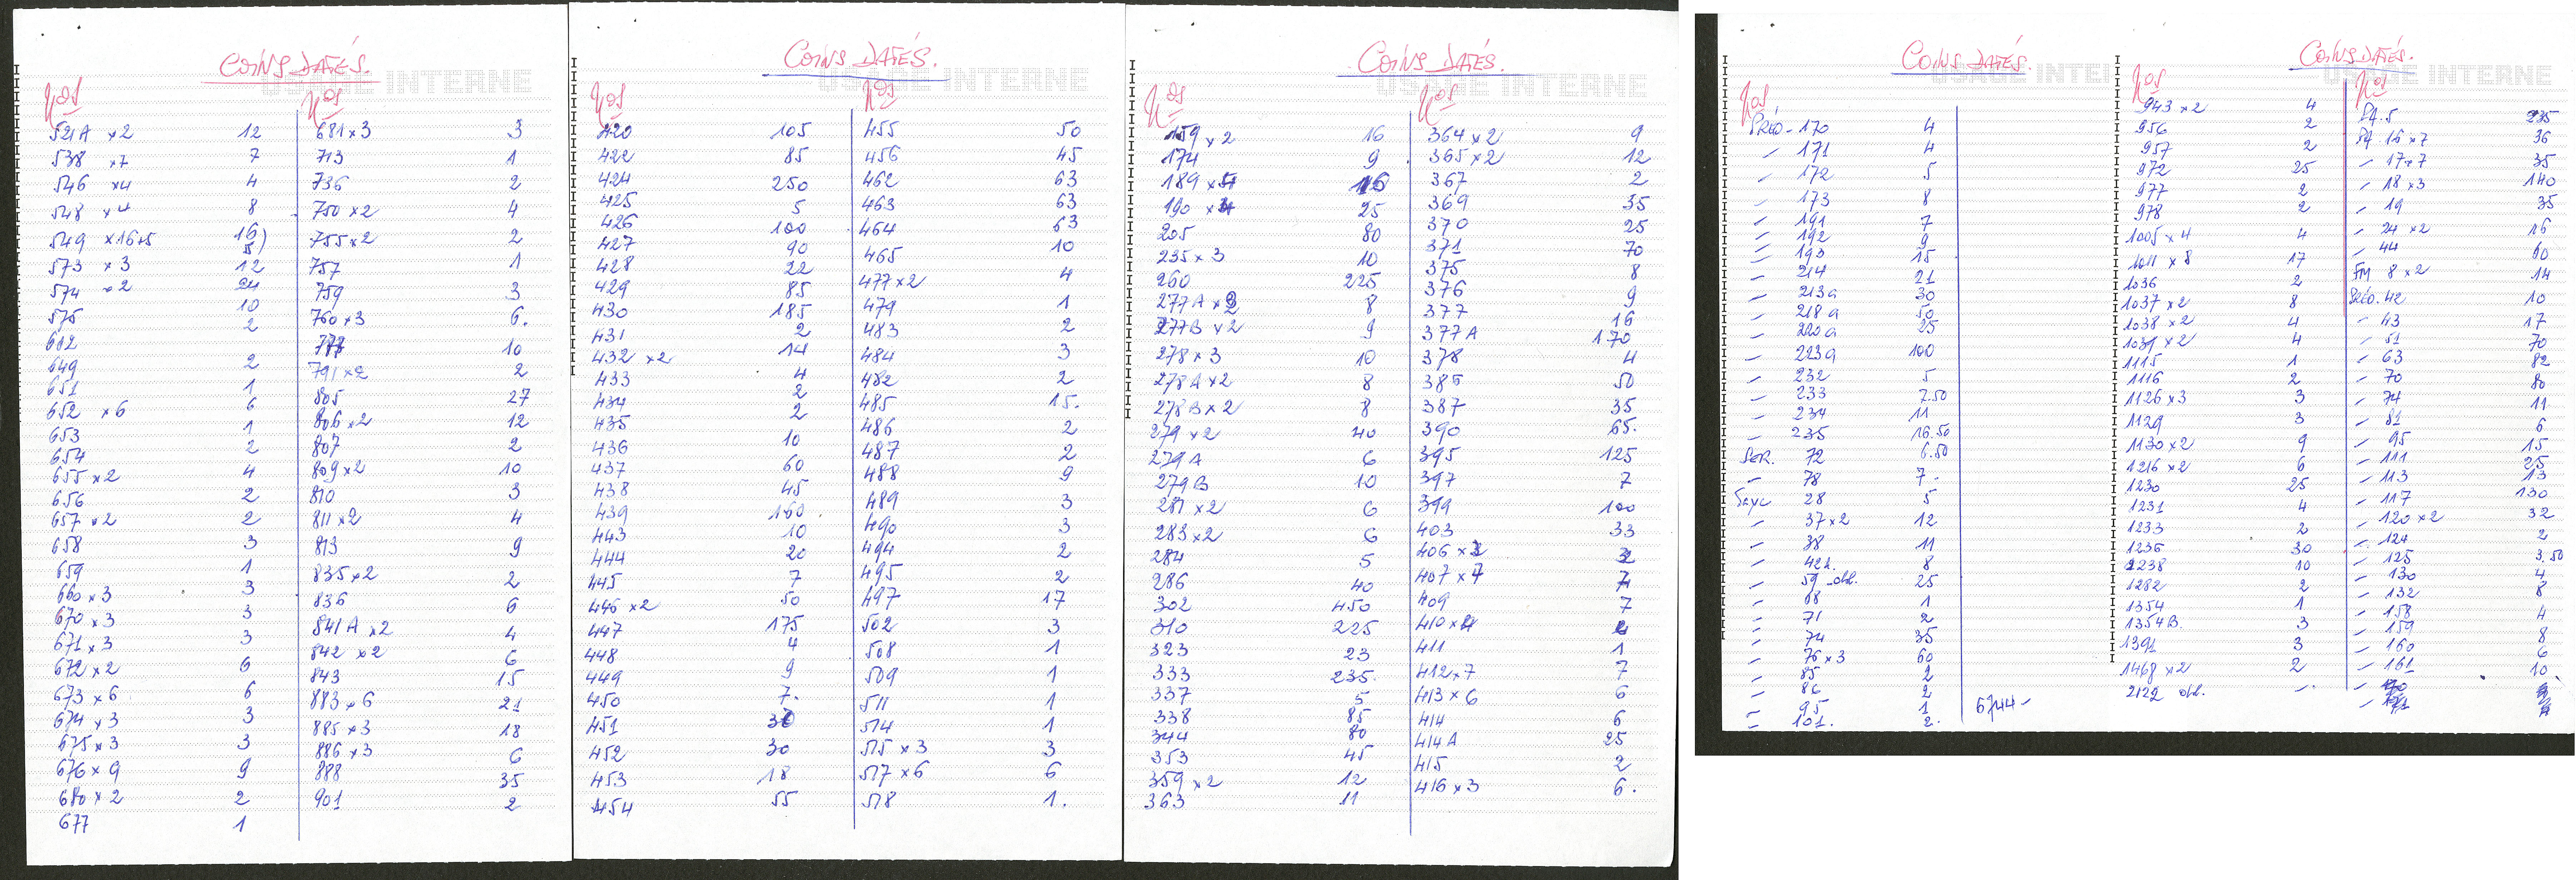 COINS DATÉS.
USAGE INTERNE
Nos
521A x2 12
538 x7 7
546 x4 4
548 x4 8
549 x16+5 16) 5)
573 x3 12
574 x2 24
575 10
602 2
649 2
651 1
652 x6 6
653 1
654 2
655 x2 4
656 2
657 x2 2
658 3
659 1
660 x3 3
670 x3 3
671 x3 3
672 x2 6
673 x6 6
674 x3 3
675 x3 3
676 x9 9
680 x2 2
677 1
Nos
681 x3 3
713 1
736 2
750 x2 4
755 x2 2
757 1
759 3
760 x3 6.
777 10
791 x2 2
805 27
806 x2 12
807 2
809 x2 10
810 3
811 x2 4
813 9
835 x2 2
836 6
841A x2 4
842 x2 6
843 15
883 x6 21
885 x3 18
886 x3 6
888 35
901 2
COINS DATÉS.
USAGE INTERNE
Nos
420 105
422 85
424 250
425 5
426 100
427 90
428 22
429 85
430 185
431 2
432 x2 14
433 4
434 2
435 2
436 10
437 60
438 45
439 160
443 10
444 20
445 7
446 x2 50
447 175
448 4
449 9
450 7.
451 30
452 30
453 18
454 55
Nos
455 50
456 45
462 63
463 63
464 63
465 10
477 x2 4
479 1
483 2
484 3
482 2
485 15.
486 2
487 2
488 9
489 3
490 3
494 2
495 2
497 17
502 3
508 1
509 1
511 1
514 1
515 x3 3
517 x6 6
518 1.
COINS DATÉS.
USAGE INTERNE
Nos
159 x2 16
174 9
189 16
190 25
205 80
235 x3 10
260 225
277A 8
277B x2 9
278 x3 10
278A x2 8
278B x2 8
279 x2 40
279A 6
279B 10
281 x2 6
283 x2 6
284 5
286 40
302 450
310 225
323 23
333 235.
337 5
338 85
344 80
353 45
359 x2 12
363 11
Nos
364 x2 9
365 x2 12
367 2
369 35
370 25
371 70
375 8
376 9
377 16
377A 170
378 4
385 50
387 35
390 65.
395 125
397 7
399 100
403 33
406
407 x7 7
409 7
410
411 1
412 x7 7
413 x6 6
414 6
414A 25
415 2
416 x3 6.
COINS DATÉS.
USAGE INTE
Nos
PRÉO - 170 4
- 171 4
- 172 5
- 173 8
- 191 7
- 192 9
- 193 15
- 214 21
- 213a 30
- 218a 50
- 220a 25
- 223a 100
- 232 5
- 233 7.50
- 234 11
- 235 16.50
SER. 72 6.50
- 78 7-
Taxe 28 5
- 37 x2 12
- 38 11
- 42 8
- 59 obl. 25
- 68 1
- 71 2
- 74 35
- 76 x3 60
- 85 2
- 86 2
- 95 1
- 101. 2.
6744-
COINS DATÉS.
USAGE INTERNE
Nos
943 x2 4
956 2
957 2
972 25
977 2
978 2
1005 x4 4
1011 x8 17
1036 2
1037 x2 8
1038 x2 4
1039 x2 4
1115 1
1116 2
1126 x3 3
1129 3
1130 x2 9
1216 x2 6
1230 25
1231 4
1233 2
1236 30
1238 10
1282 2
1354 1
1354B. 3
1392 3
1468 x2 2
2122 obl. -.
Nos
PA. 5 235
PA 16 x7 36
- 17 x7 35
- 18 x3 140
- 19 35
- 24 x2 16
- 44 60
FM 8 x2 14
PRÉO. 42 10
- 43 17
- 51 70
- 63 82
- 70 80
- 74 11
- 81 6
- 95 15
- 111 25
- 113 13
- 117 130
- 120 x2 32
- 124 2
- 125 3.50
- 130 4
- 132 8
- 158 4
- 159 8
- 160 6
- 161 10